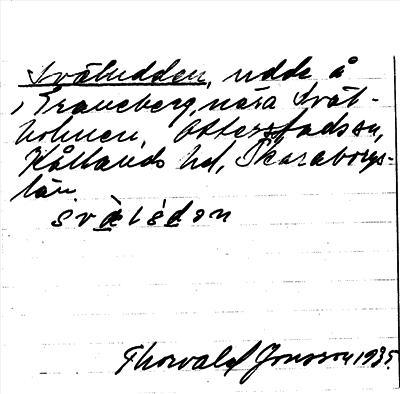 Svaludden, udde å
Traneberg, nära Sval-
holmen. Otterstads sn,
Kållands hd, Skaraborgs-
län.
Thorvald Jonsson 1935.